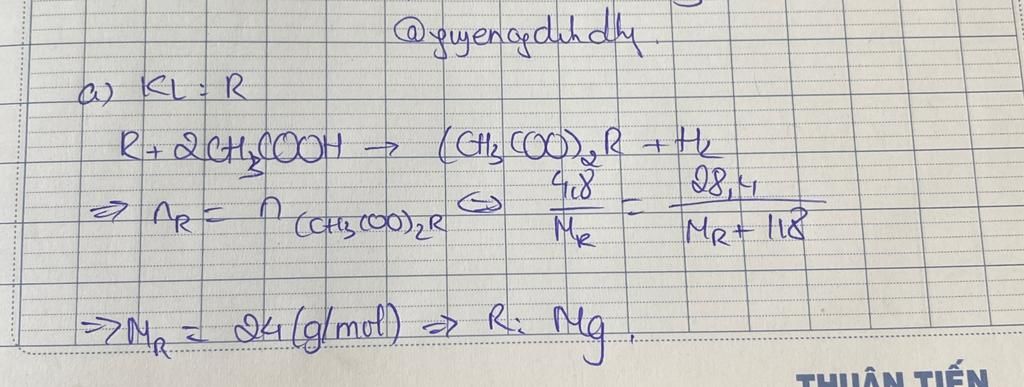 @nguyengdhdhy.
a) KL: R
R + 2CH3COOH → (CH3COO)2R + H2
⇒ nR = n(CH3COO)2R ⇔ 4,8/MR = 28,4/(MR + 118)
⇒ MR = 24 (g/mol) ⇒ R: Mg.
THUẬN TIẾN